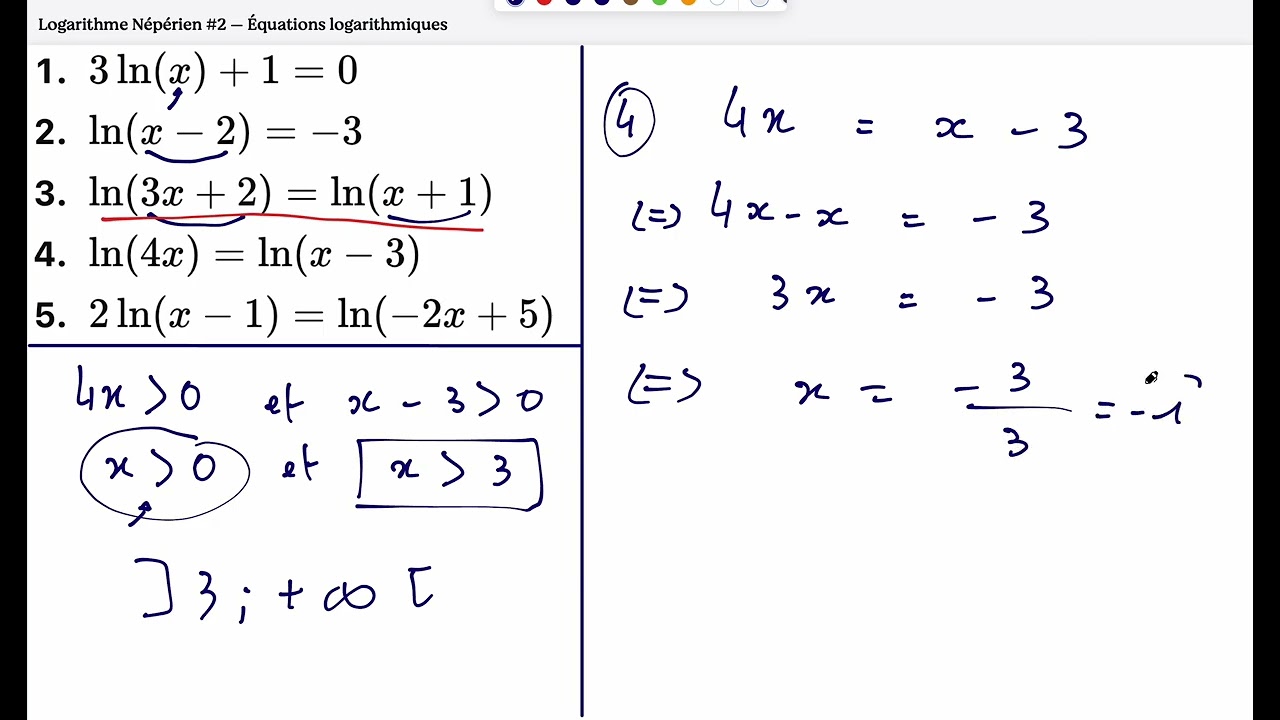 Logarithme Népérien #2 – Équations logarithmiques
1. 3 ln(x) + 1 = 0
2. ln(x − 2) = −3
3. ln(3x + 2) = ln(x + 1)
4. ln(4x) = ln(x − 3)
5. 2 ln(x − 1) = ln(−2x + 5)
4x > 0 et x - 3 > 0
x > 0 et x > 3
]3 ; + ∞ [
4 4x = x - 3
(=) 4x - x = - 3
(=) 3x = - 3
(=) x = - 3/3 = - 1